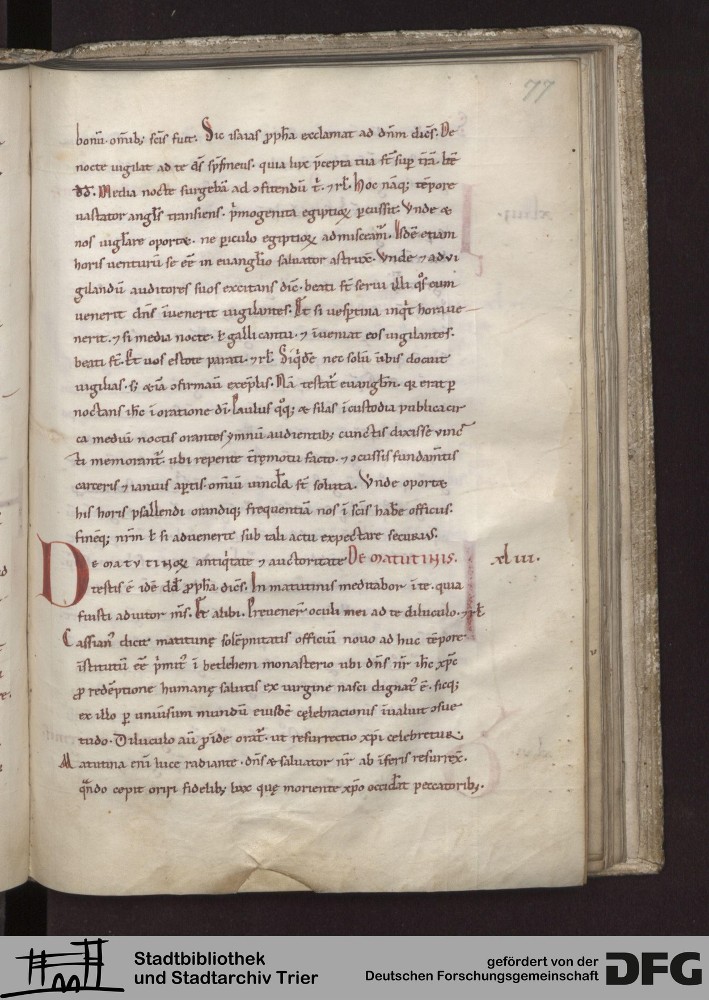 77
bonū. omib; scis fuit. Sic isaias ꝓpha exclamat ad dnm dicēs. De
nocte uigilat ad te ds sps meus. quia lux p̄cepta tua st sup trā. bte
dd. Media nocte surgebā ad ɔfitendū t̄. ⁊ rł. Hoc nāq; tēpore
uastator angls transiens. p̄mogenita egiptioꝝ pcussit. Vnde &
nos uigilare oport&. ne piculo egiptioꝝ admisceam̄. Isdē etiam
horis uenturū se eē in euanglio saluator astrux̄. Vnde ⁊ ad ui
gilandū auditores suos excitans dic̄. beati st serui illi qos cum
uenerit dns īuenerit uigilantes. Et si uesptina inqt hora ue
nerit. ⁊ si media nocte. ł galli cantu. ⁊ īueniat eos uigilantes.
beati st. Et uos estote parati. ⁊ rł. Siqdē nec solū ūbis docuit
uigilias. s; &iā ɔfirmauı exēplis. Nā testat̄ euanglm. qa erat p
noctans ihc ī oratione dī. Paulus qoq; & silas ī custodia publica cir
ca mediū noctis orantes ymnū audientib; cunctis dixisse uinc
ti memorant̄. ubi repente t̄remotu facto. ⁊ ɔcussis fundam̄tis
carceris ⁊ ianue aptis. omiū uincla st soluta. Vnde oport&
his horis psallendi orandiq; frequentiā nos ī scis habe officiis.
finēq; nrm ł si aduenerit sub tali actu expectare securus.
De matutinoꝝ antiqitate ⁊ auctoritate De matutinis. xl iii.
testis ē idē dd ꝓpha dicēs. In matutinis meditabor ī te. quia
fuisti adiutor ms. Et alibi. Preuener̄ oculi mei ad te diluculo. ⁊ rł
Cassian̄ dicit matutinę solēpnitatis officiū nouo ad huc tēpore
īstitutū eē pmit̄ ī betlehem monasterio ubi dns nr ihc xpc
ꝓ redēptione humanę salutis ex uirgine nasci dignat̄ ē. sicq;
ex illo p uniūsum mundū eiusdē cęlebracionis īualuit ɔsue
tudo. Diluculo aū ꝓ ide orat̄. ut resurrectio xpi celebretur.
Matutina eni luce radiante. dns & saluator nr ab īferis resurrex̄.
qando cepit oriri fidelib; lux quę moriente xpo occidat peccatorib;.
Stadtbibliothek
und Stadtarchiv Trier
gefördert von der
Deutschen Forschungsgemeinschaft
DFG